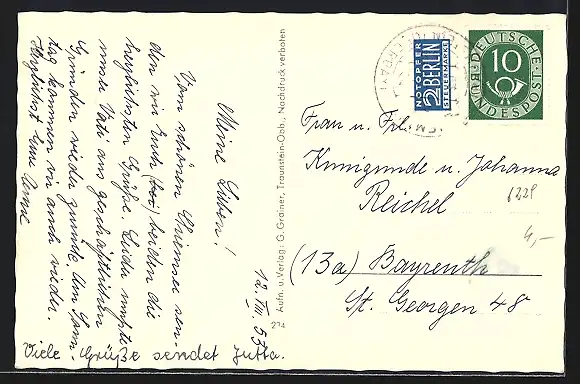 12. VIII. 53
Meine Lieben!
Vom schönen Chiemsee sen-
den wir Euch (bei) beiden die
herzlichsten Grüße. Leider mußte
unser Vati aus geschäftlichen
Gründen wieder zurück. Am Sonn-
tag kommen wir auch wieder.
Herzlichst Eure
Viele Grüße sendet Jutta.
Aufn. u. Verlag: G. Grainer, Traunstein-Obb., Nachdruck verboten
274
NOTOPFER
2 BERLIN
STEUERMARKE
DEUTSCHE
BUNDESPOST
10
Frau u. Frl.
Kunigunde u. Johanna
Reichel
(13a) Bayreuth
St. Georgen 48
4,-